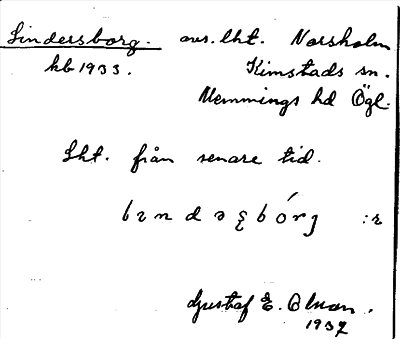 Lindersborg. avs. lht. Norsholm
kb 1933. Kimstads sn.
Memmings hd Ögl.
Lht. från senare tid.
:r
Gustaf E. Olsson.
1937